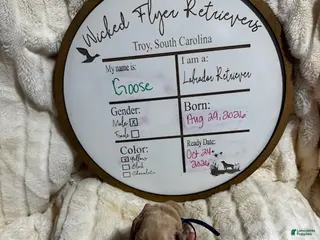 Wicked Flyer Retrievers
Troy, South Carolina
My name is:
Goose
I am a:
Labrador Retriever
Gender:
Male X
Female
Born:
Aug 29, 2026
Color:
Yellow
Black
Chocolate
Ready Date:
Oct 24,
2026
Lancaster
Puppies